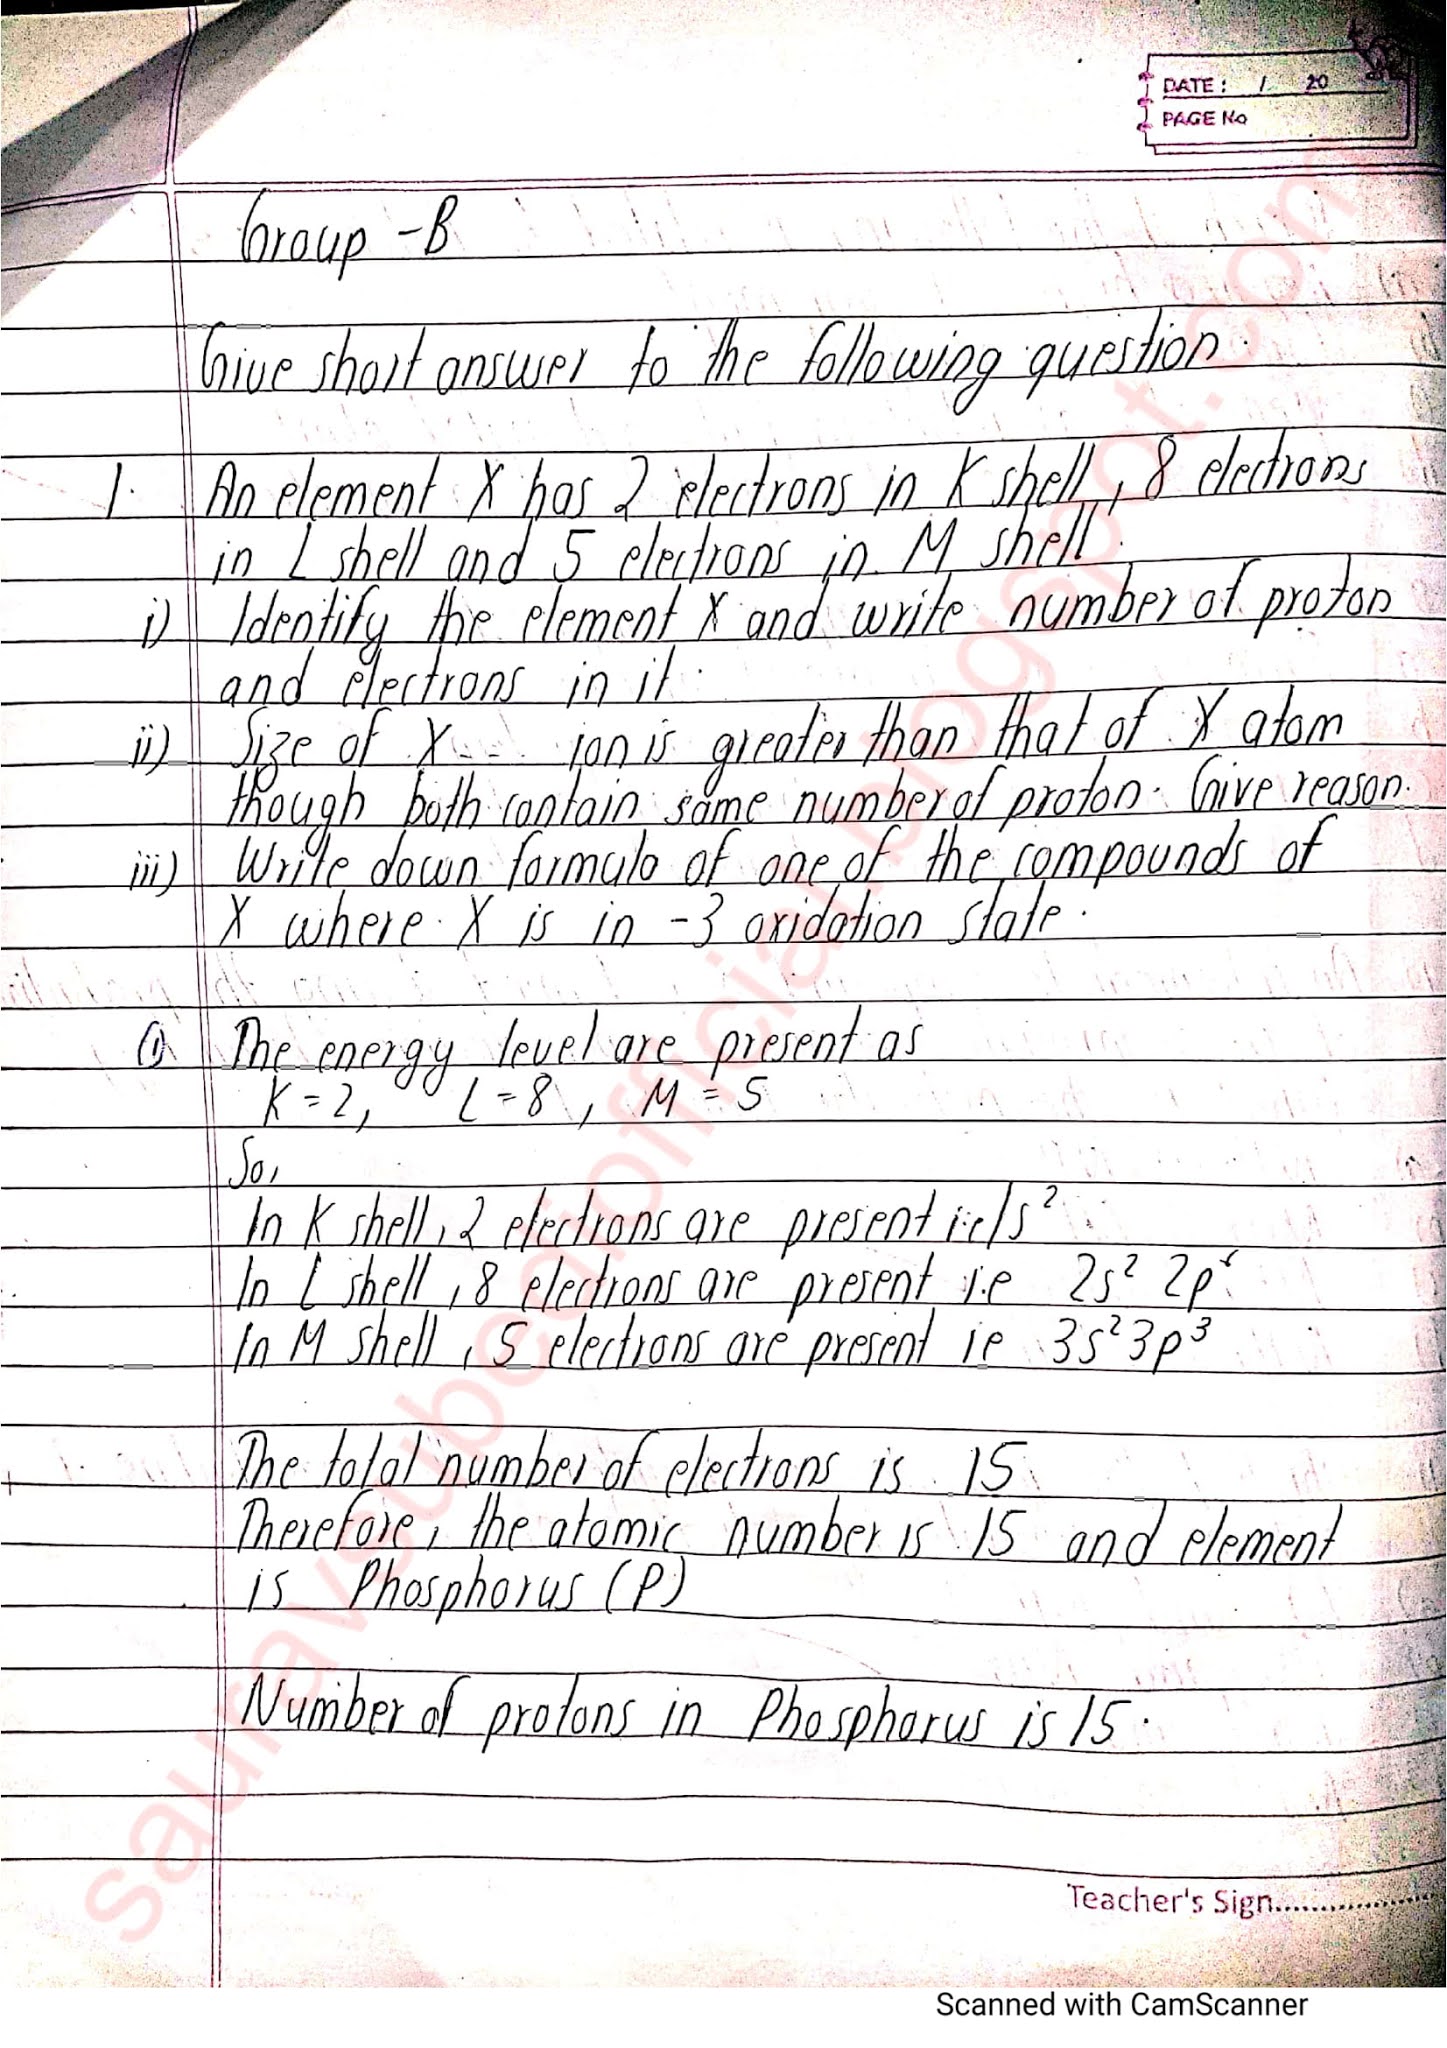 DATE: / 20
PAGE No
Group - B
Give short answer to the following question.
1. An element X has 2 electrons in K shell, 8 electrons
in L shell and 5 electrons in M shell.
i) Identify the element X and write number of proton
and electrons in it.
ii) Size of X--- ion is greater than that of X atom
though both contain same number of proton. Give reason.
iii) Write down formula of one of the compounds of
X where X is in -3 oxidation state.
(i) The energy level are present as
K = 2, L = 8, M = 5
So,
In K shell, 2 electrons are present i.e 1s²
In L shell, 8 electrons are present i.e 2s² 2p⁶
In M shell, 5 electrons are present ie 3s² 3p³
The total number of electrons is 15
Therefore, the atomic number is 15 and element
is Phosphorus (P)
Number of protons in Phosphorus is 15.
Teacher's Sign...............
sauravsubediofficial.blogspot.com
Scanned with CamScanner